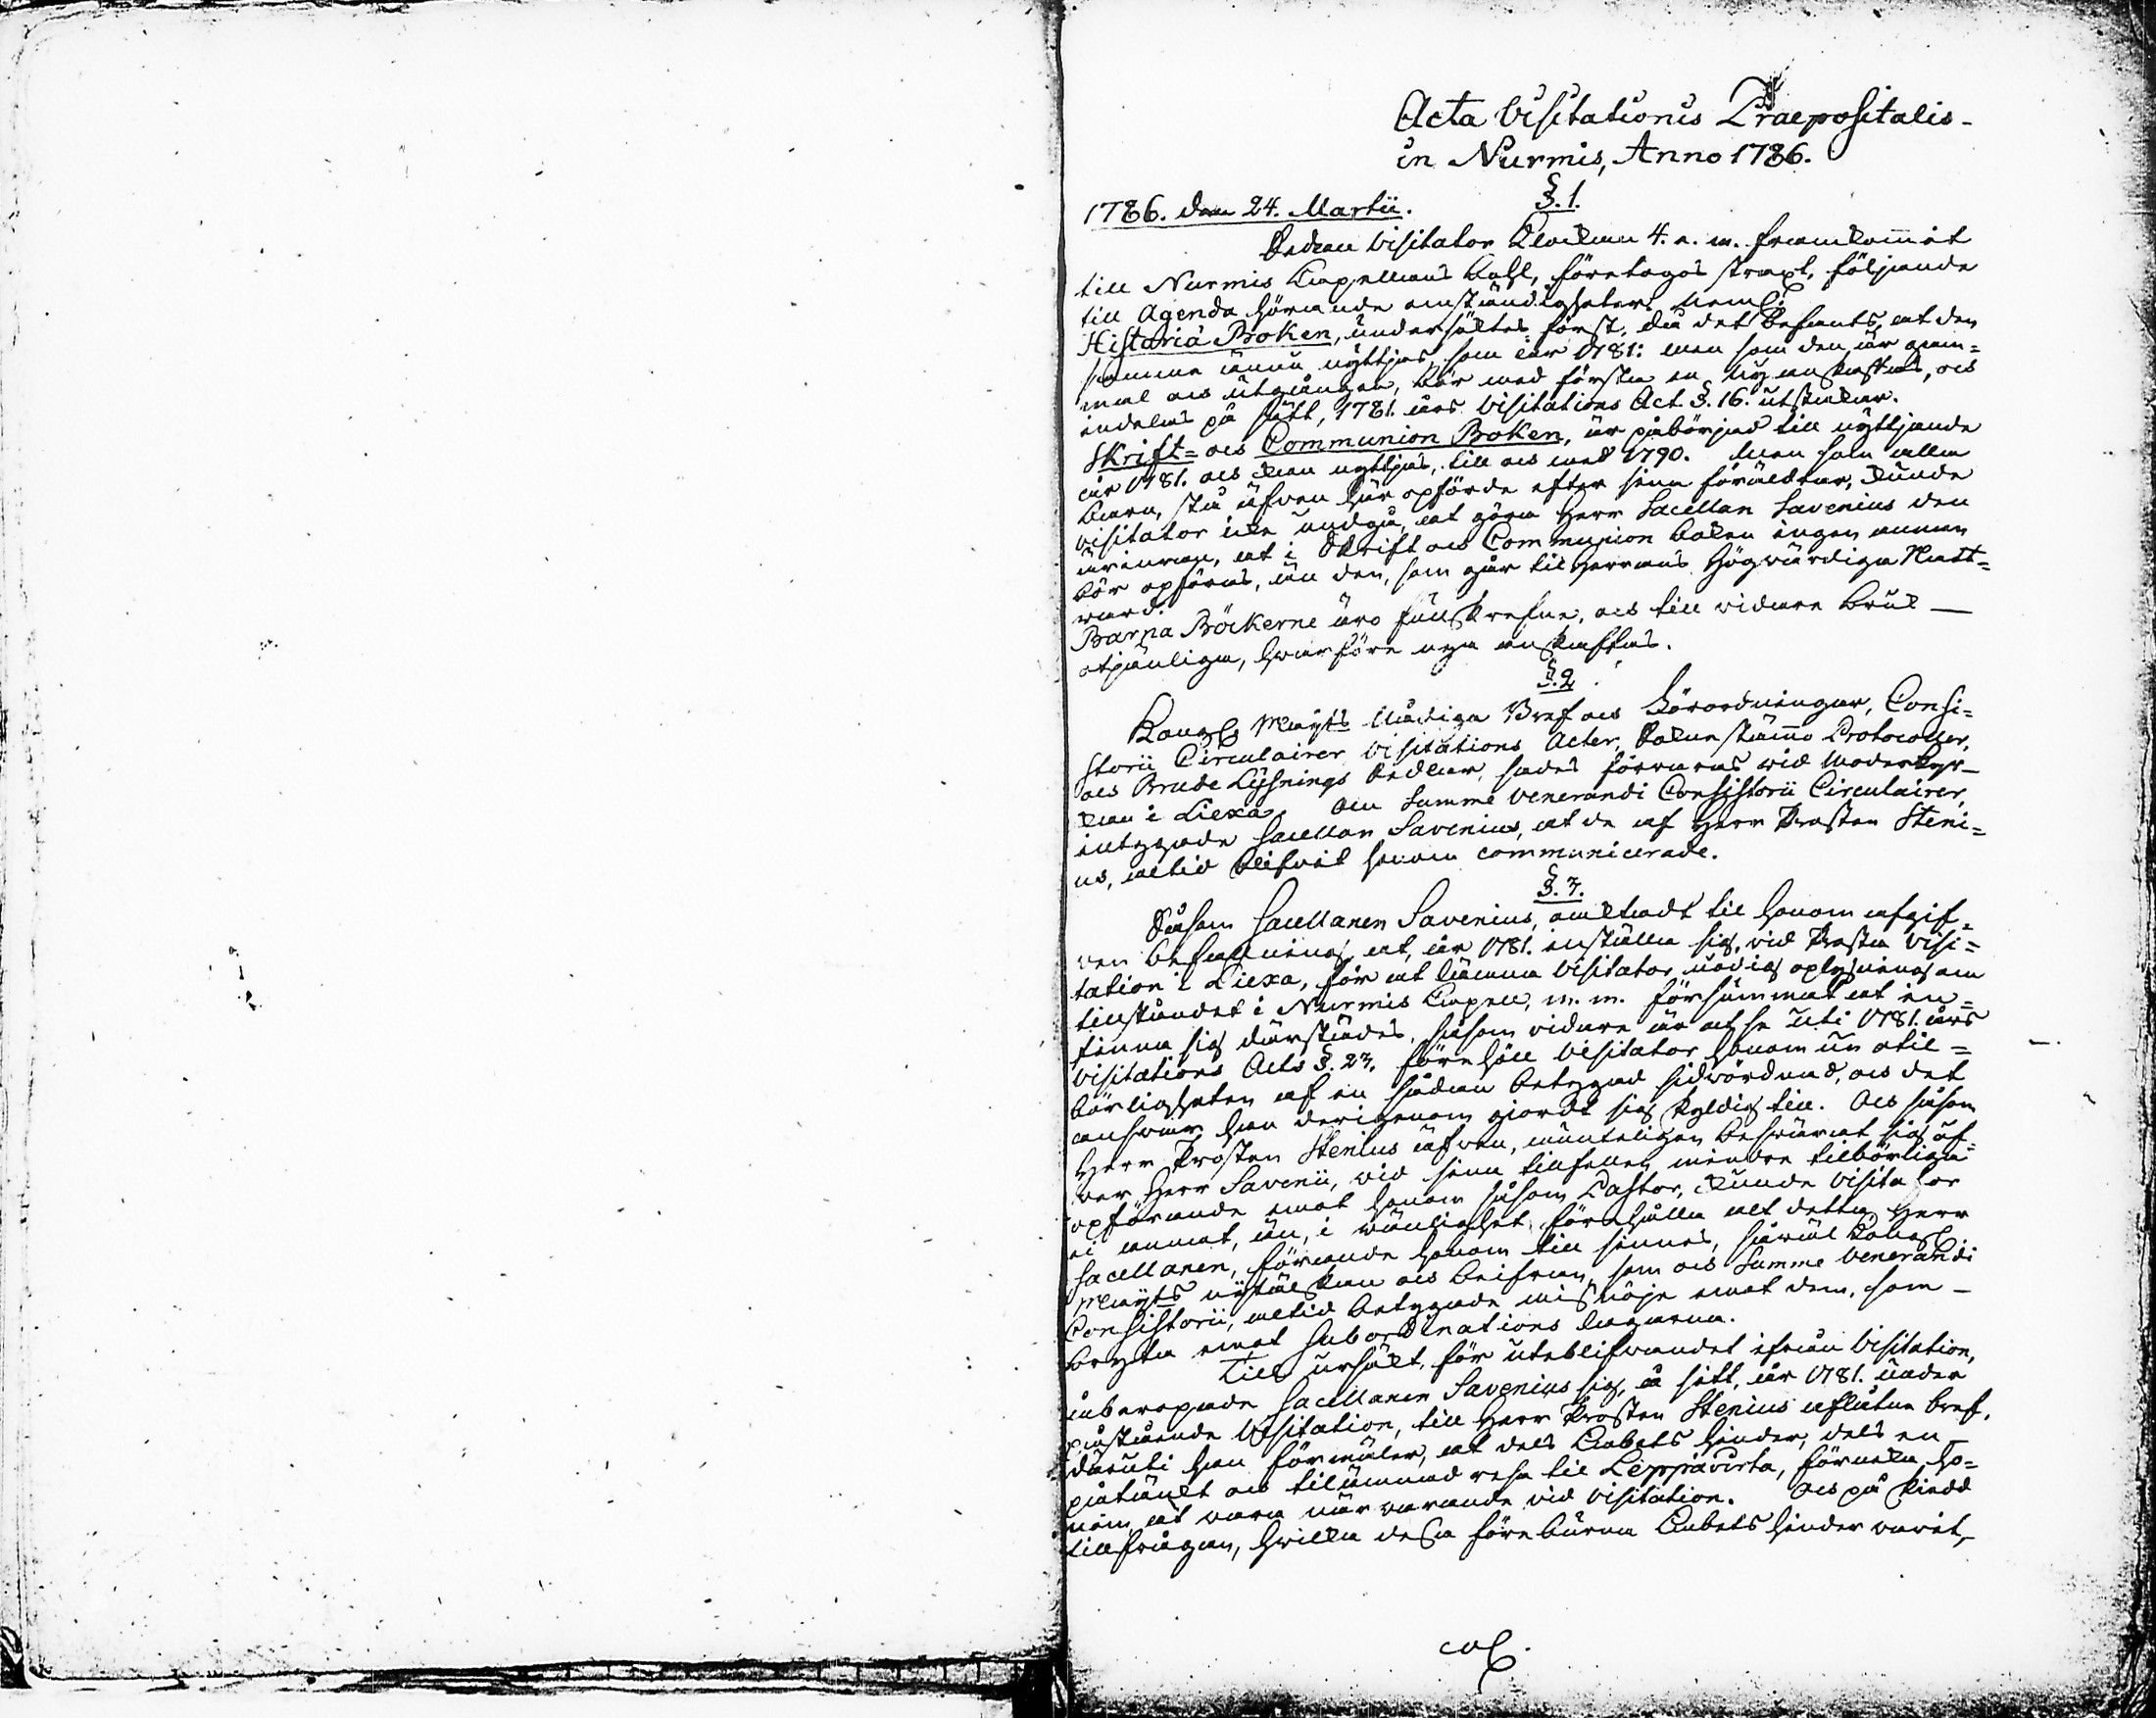 Acta Visitationis Praepositalis
in Nurmis, Anno 1786.
1786. den 24. Martii. §. 1.
Sedan Visitator Klockan 4. e. m. framkom̄it
till Nurmis Capellans Bohl, företogos straxt, följande
till Agenda hörande omständigheter, neml:
Historiæ Boken, undersöktes först, då det befants, at den
samma ännu nyttjas, som år 1781: men som den är gam=
mal och utgången, bör med första en ny anskaffas, och
indelas på sätt, 1781. års Visitations Act. §. 16. utstakar.
Skrift= och Communion Boken, är påbörjad till nyttjande
år 1781. och kan nyttjas, till och med 1790. Men som alla
barn, stå äfven här opförde efter sina föräldrar, kunde
Visitator icke undgå, at göra Herr Sacellan Savenius den
ärinran, at i Skrift och Communion boken ingen annan
bör opföras, än den, som går til Herrans Högwärdiga Natt=
ward.
Barna Böckerne äro fullskrefne, och till vidare bruk
otjänliga, hwarföre nya anskaffas.
§. 2
Kongl. Maj:ts Nådiga Bref och Förordningar, Consi=
storii Circulairer, Visitations Acter, Sokne stäm̄o Protocoller,
och Brude Lysnings Sedlar, sades förvaras vid Moderkyr-
kan i Liexa. Om Summe Venerandi Consistorii Circulairer,
intygade Sacellan Savenius, at de af Herr Prosten Steni=
us, altid blifvit honom communicerade.
§. 3.
Såsom Sacellanen Savenius, oaktadt til honom afgif=
ven befallning, at, år 1781. inställa sig, vid Prosta Visi=
tation i Liexa, för at lämna Visitator nödig oplysning om
tillståndet i Nurmis Capell, m. m. försummat at in=
finna sig därstädes, såsom vidare är at se uti 1781. års
Visitations Acts §. 23. förehöll Visitator honom nu otil=
börligheten af en sådan betygad sidvördnad, och det
answar han derigenom giordt sig skyldig till. Och såsom
Herr Prosten Stenius äfven, munteligen beswärat sig öf=
ver Herr Savenii, vid sina tillfellen mindre tilbörliga
opförande emot honom såsom Pastor, kunde Visitator
ei annat, än, i wänlighet, förehålla alt detta Herr
Sacellanen, förande honom till sinnes, såväl Kongl.
Maj:ts nytälskan och beifran, som och Summe Venerandi
Consistorii, altid betygade misnöje emot dem, som
bryta emot Subordinations lagarna.
Till ursäkt, för uteblifvandet ifrån Visitation,
åberopade Sacellanen Savenius sig, å sitt, år 1781. under
påstående Visitation, till Herr Prosten Stenius aflåtne bref,
däruti han förmäler, at dels Embets hinder, dels en
påtänkt och tilämnad resa til Leppävirta, förneka ho=
nom at vara närvarande vid Visitation. Och på skiedd
tillfrågan, hvilka dessa föreburna Embets hinder varit,